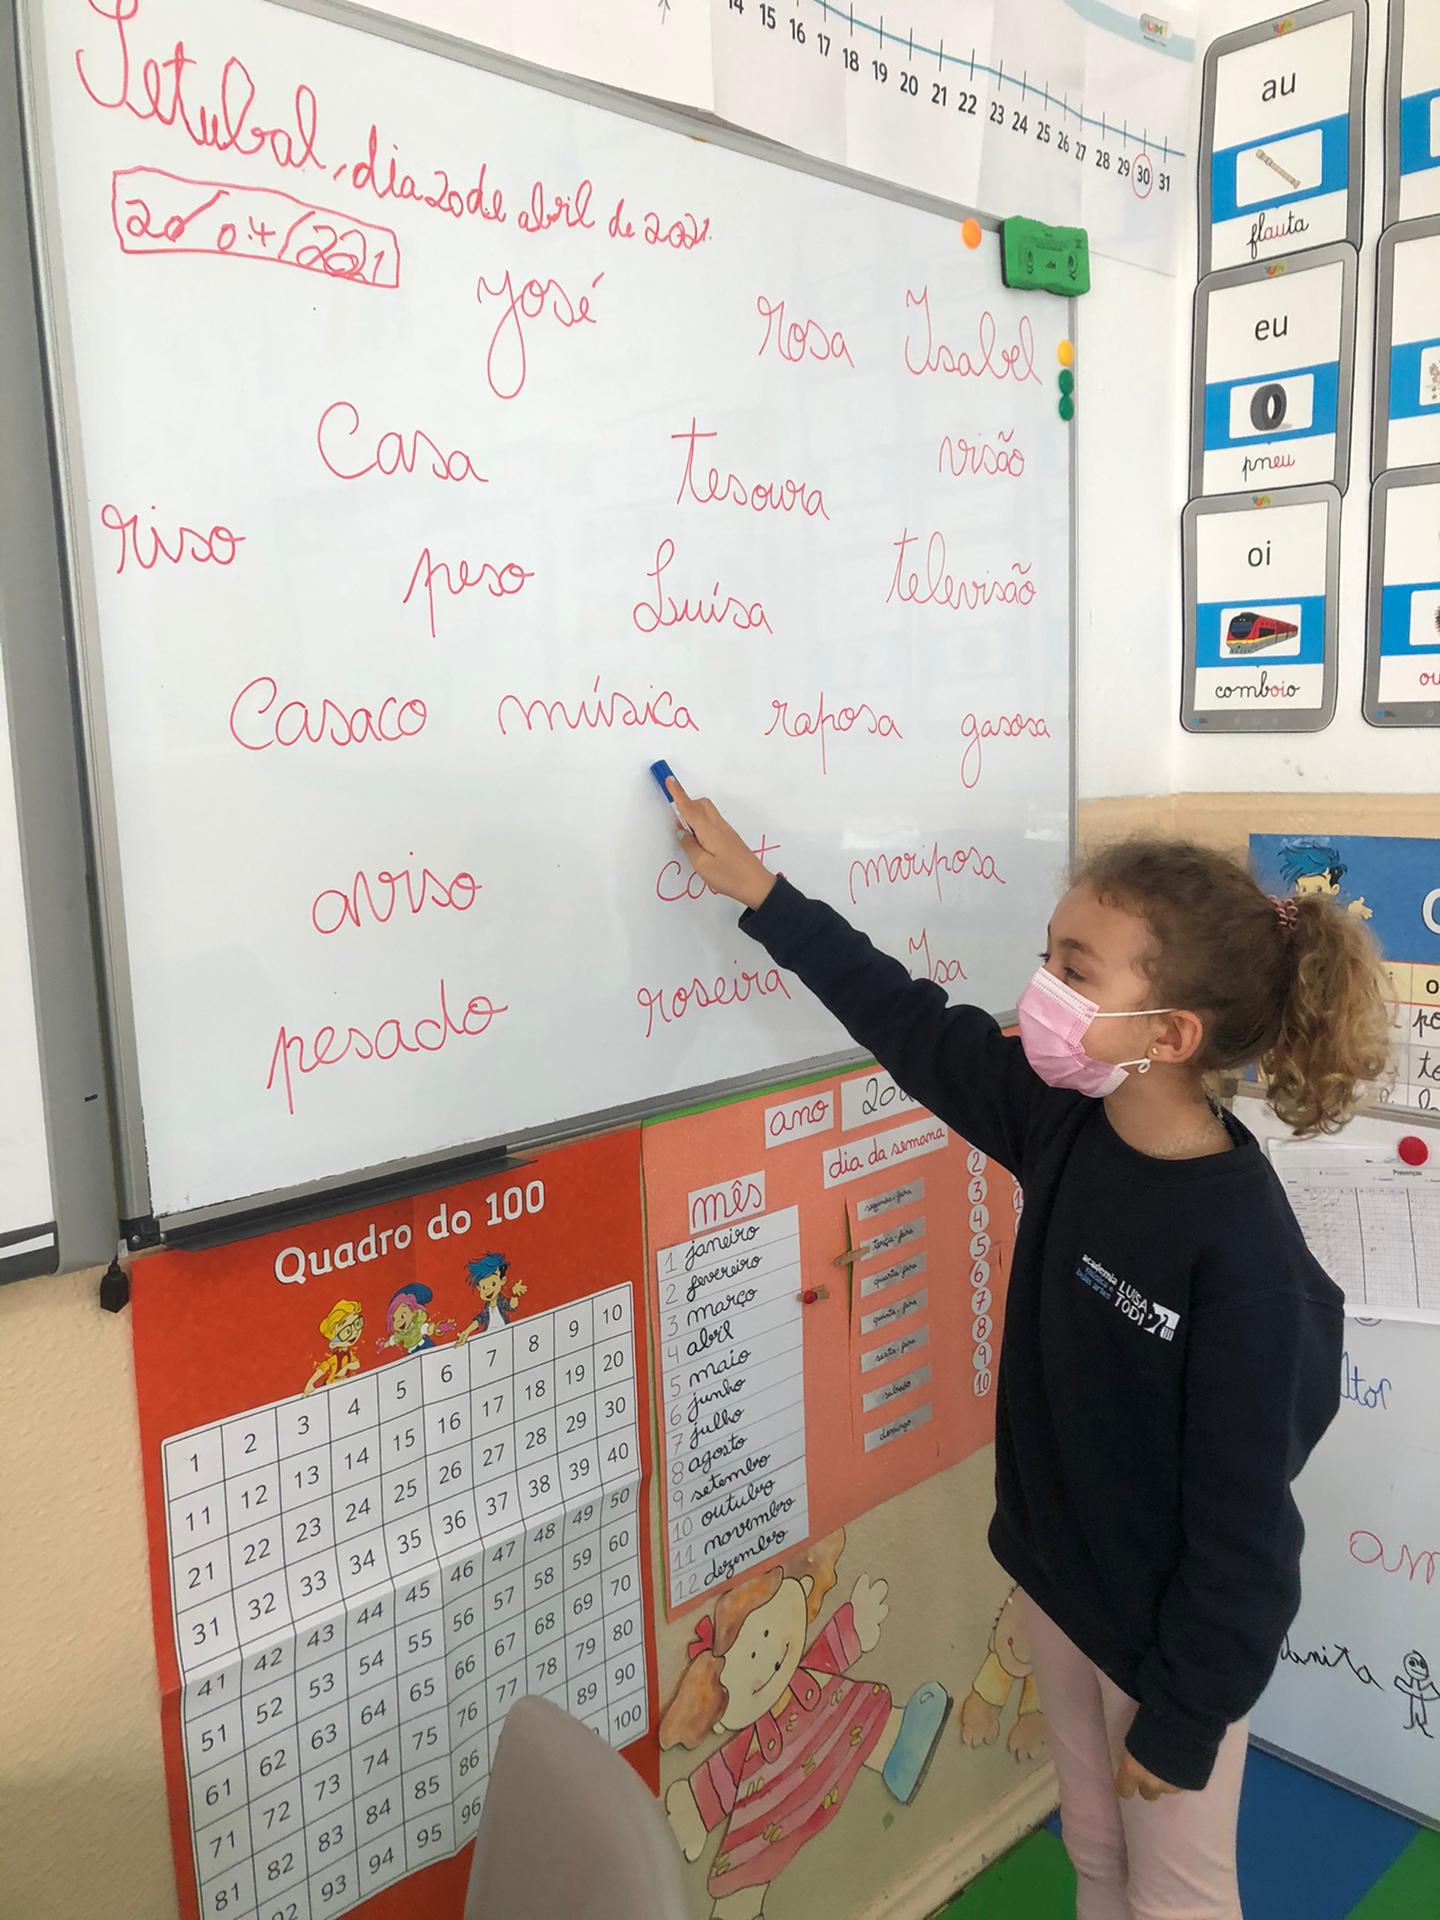 14 15 16 17 18 19 20 21 22 23 24 25 26 27 28 29 30 31
Setubal, dia 20 de abril de 2021.
20/04/2021
José
rosa Isabel
Casa tesoura visão
riso peso Luísa televisão
Casaco música raposa gasosa
aviso mariposa
pesado roseira Isa
au
flauta
eu
pneu
oi
comboio
ou
Quadro do 100
1 2 3 4 5 6 7 8 9 10
11 12 13 14 15 16 17 18 19 20
21 22 23 24 25 26 27 28 29 30
31 32 33 34 35 36 37 38 39 40
41 42 43 44 45 46 47 48 49 50
51 52 53 54 55 56 57 58 59 60
61 62 63 64 65 66 67 68 69 70
71 72 73 74 75 76 77 78 79 80
81 82 83 84 85 86 89 90
92 93 94 95 96 100
ano
mês
1 janeiro
2 fevereiro
3 março
4 abril
5 maio
6 junho
7 julho
8 agosto
9 setembro
10 outubro
11 novembro
12 dezembro
dia da semana
segunda-feira
terça-feira
quarta-feira
quinta-feira
sexta-feira
sábado
domingo
2
3
4
5
6
7
8
9
10
academia
música e
belas artes
LUÍSA
TODI
Presenças